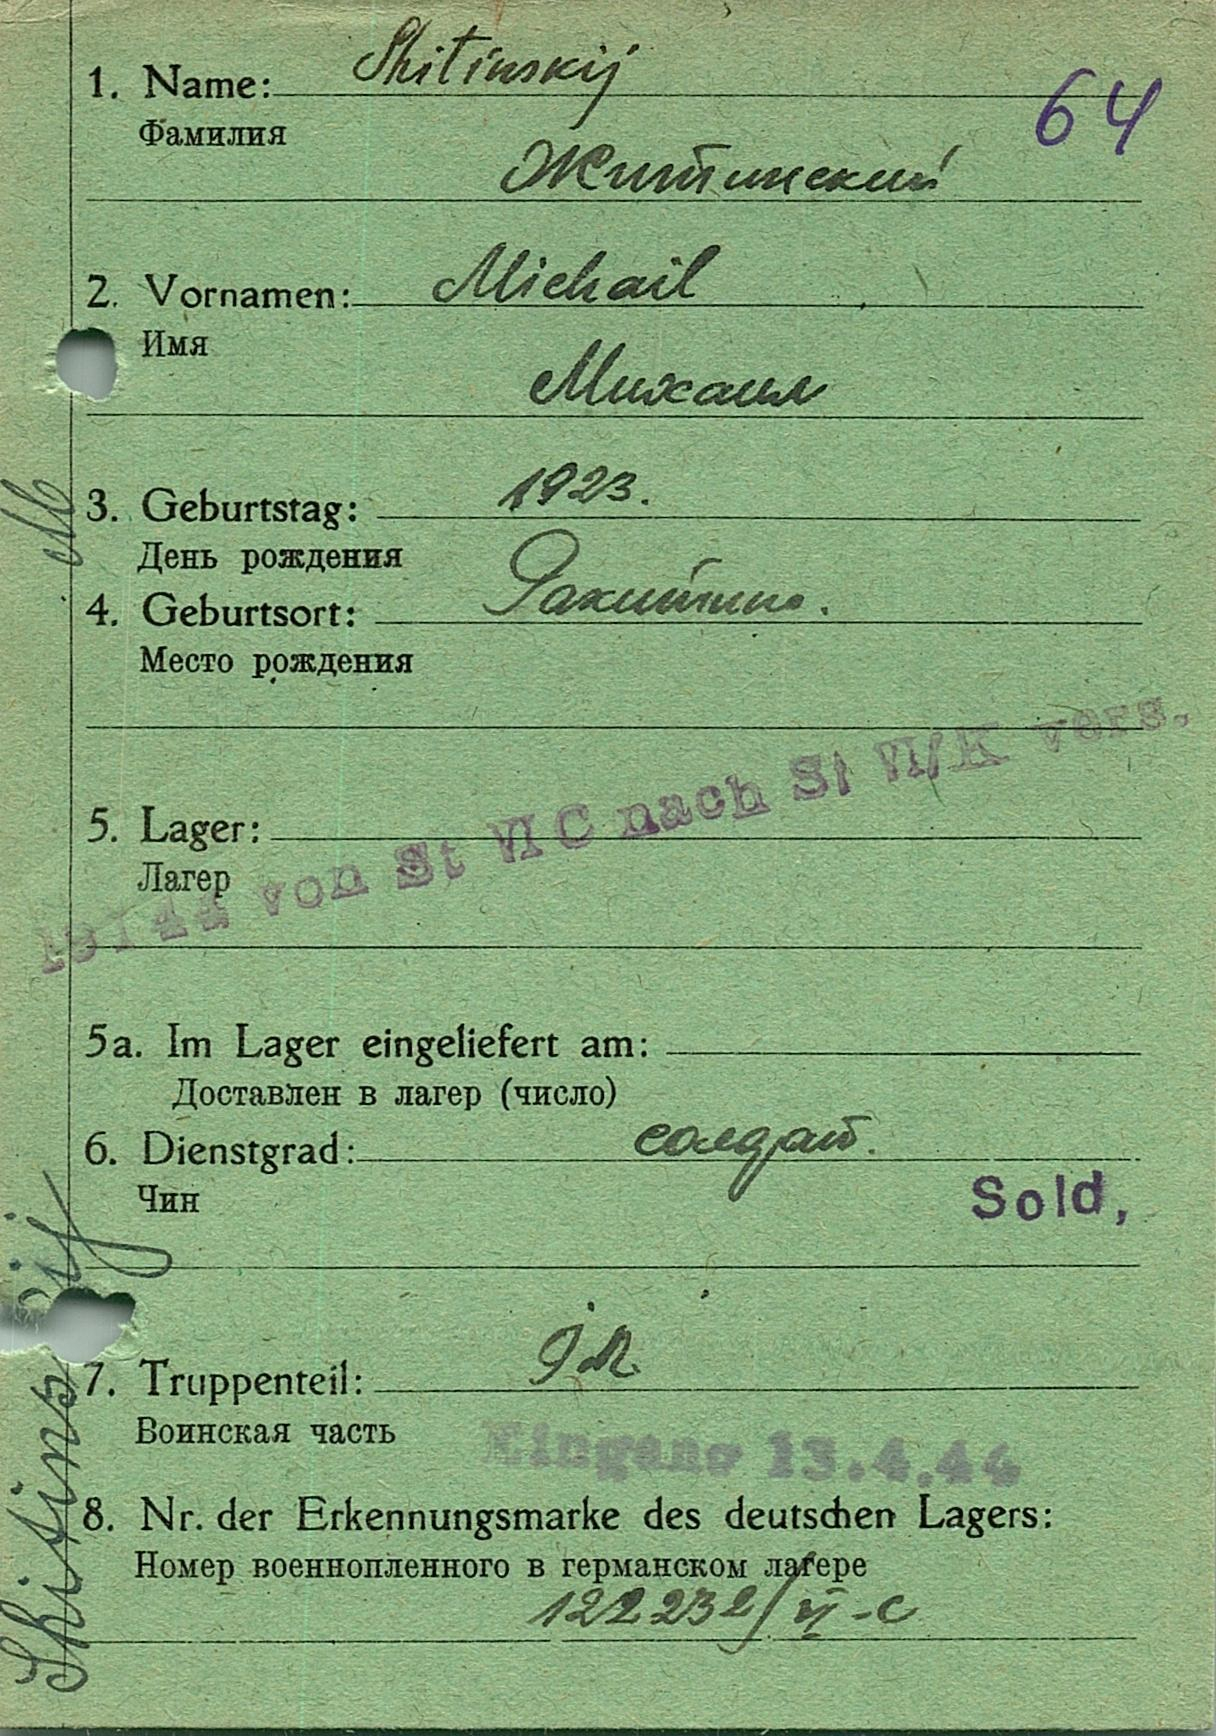 1. Name: Shitinskij
64
Фамилия
Житинский
2. Vornamen: Michail
Имя
Михаил
3. Geburtstag: 1923.
День рождения
4. Geburtsort: Ракитино.
Место рождения
von St VI C nach St VI/K vers.
5. Lager:
Лагер
5a. Im Lager eingeliefert am:
Доставлен в лагер (число)
6. Dienstgrad: солдат.
Чин
Sold,
7. Truppenteil:
Воинская часть
Eingang 13.4.44
8. Nr. der Erkennungsmarke des deutschen Lagers:
Номер военнопленного в германском лагере
122232/VI-C
Shitinskij